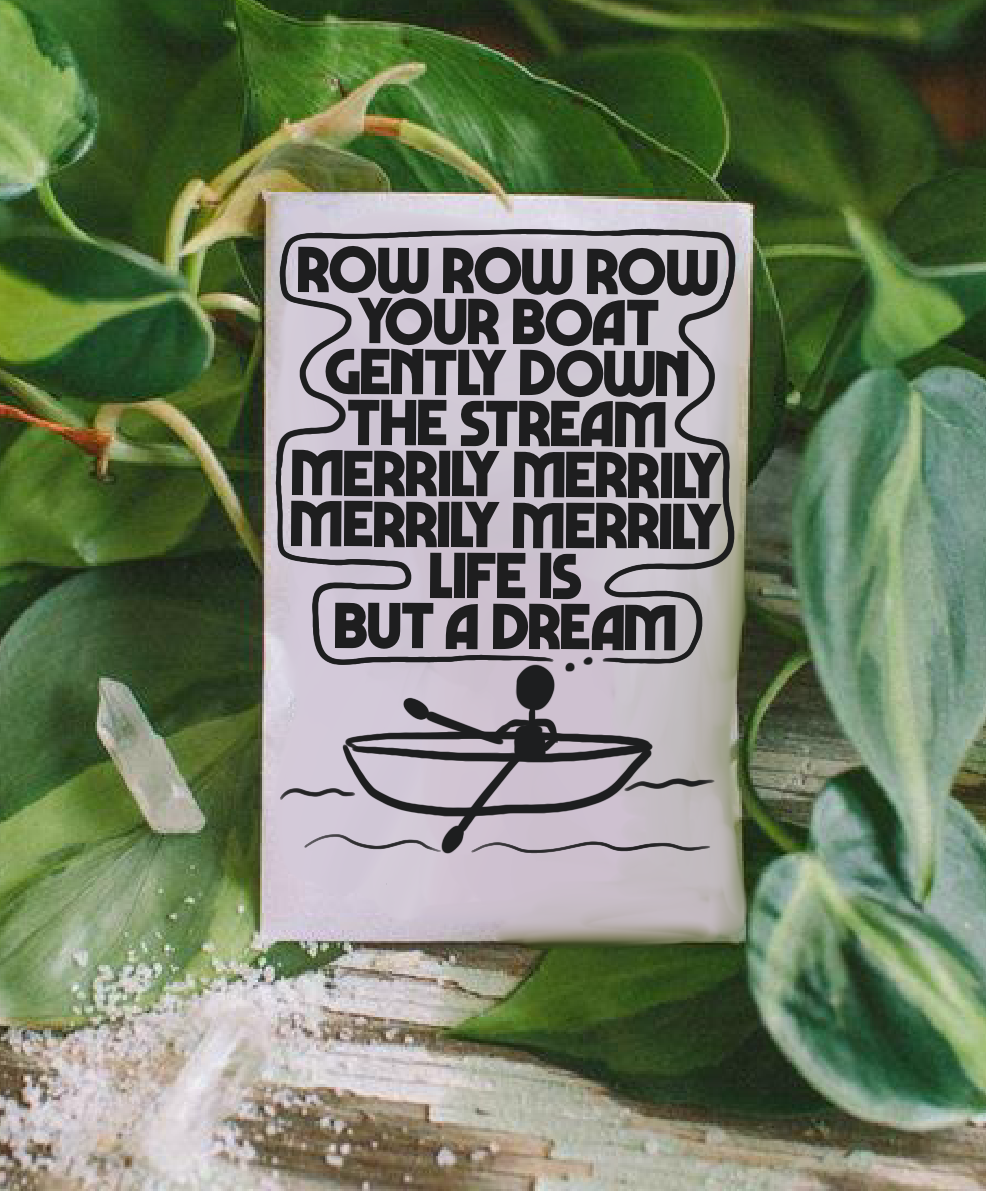 ROW ROW ROW
YOUR BOAT
GENTLY DOWN
THE STREAM
MERRILY MERRILY
MERRILY MERRILY
LIFE IS
BUT A DREAM